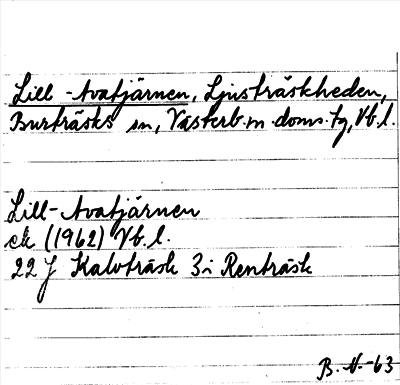 Lill-Avatjärnen, Ljusträskheden,
Burträsks sn, Västerb. m. doms. tg, Vb. l.
Lill-Avatjärnen
ek (1962) Vb. l.
22 J Kalvträsk 3i Renträsk
B. N. -63